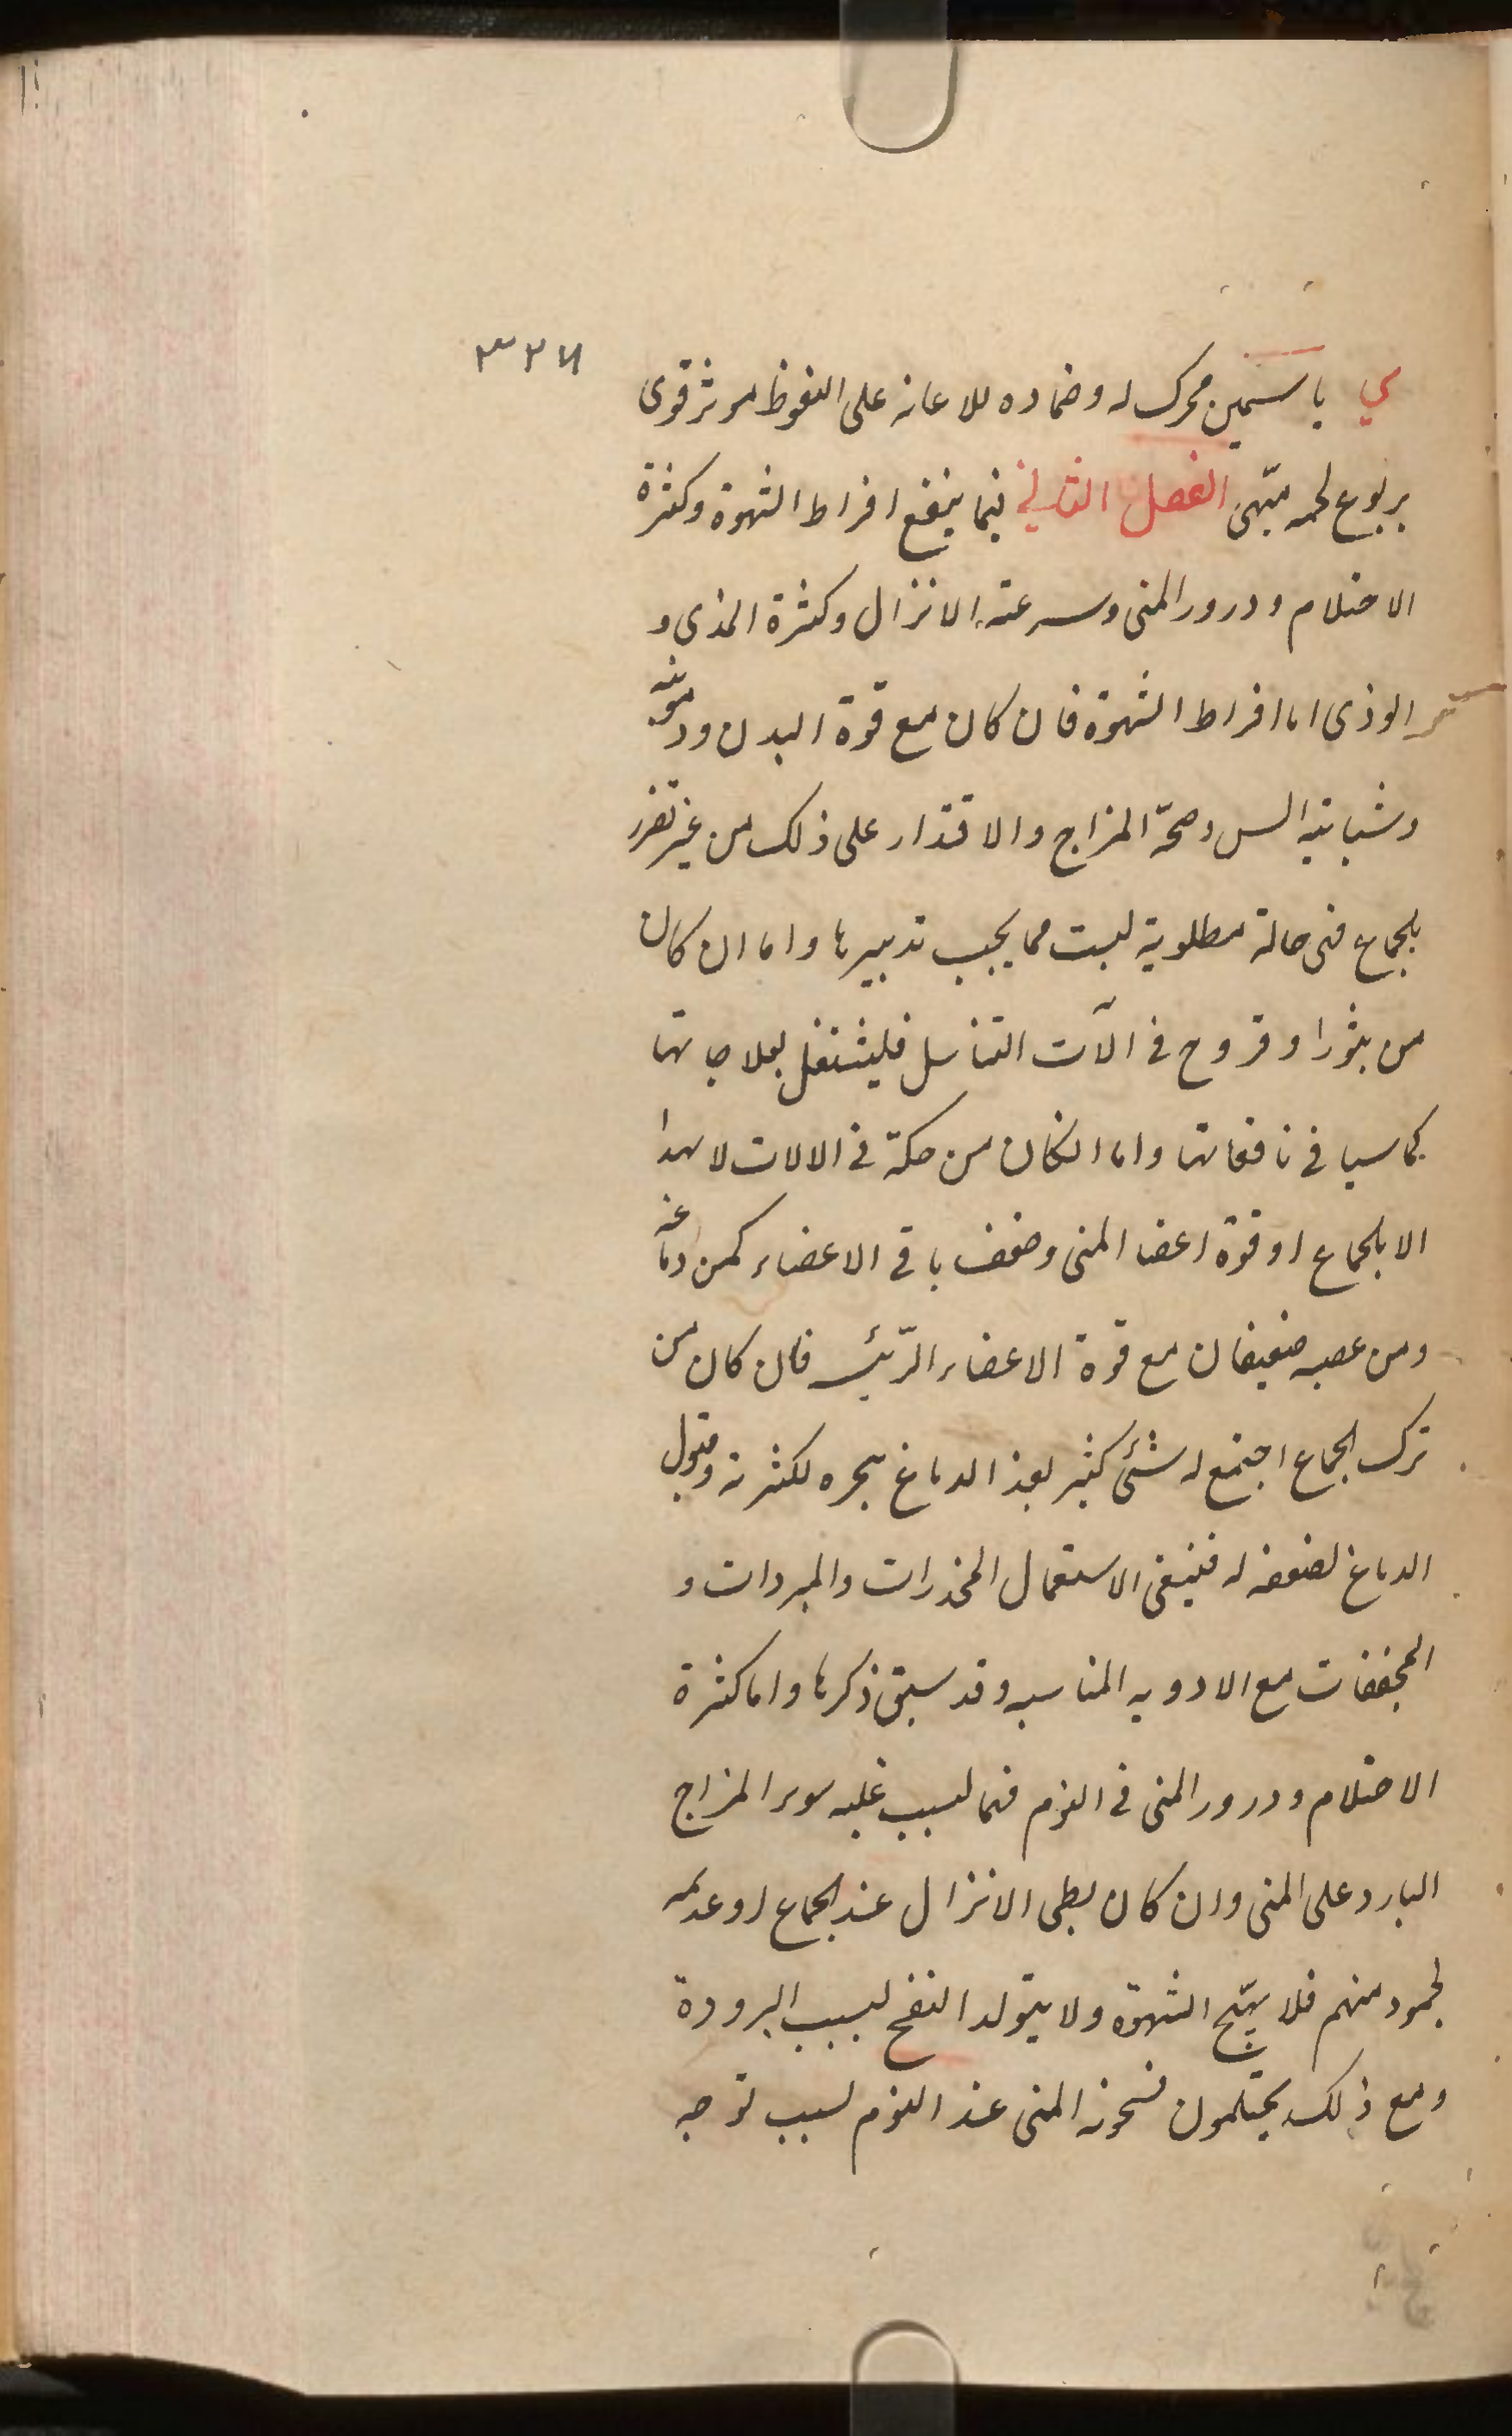 ٣٢٧
ي ياسمين محرك له وضماده للاعانه على النغوظ موثر قوى
يربوع لحمه مبهى الفصل الثاني فيما ينفع افراط الشهوة وكثرة
الاحتلام ودرور المنى وسرعته الانزال وكثرة المذى و
الوذى اما افراط الشهوة فان كان مع قوة البدن ودمويته
وشبابية السن وصحّة المزاج والاقتدار على ذلك من غير تضرر
بالجماع فهى حالة مطلوبة ليست مما يجب تدبيرها واما ان كان
من بثور او قروح فى آلات التناسل فليشتغل بعلاجاتها
كما سيا فى نافعاتها واما انكان من حكة فى الالات لا يهدا
الا بالجماع او قوة اعضا المنى وضعف باقى الاعضاء كمن دماغه
ومن عصبه ضعيفان مع قوة الاعضاء الرّئيسه فان كان من
ترك الجماع اجتمع له شئ كثير بعد الدماغ بنجره لكثرته وقبول
الدماغ لضعفه له فينبغى الاستعمال المخدرات والمبردات و
المجففات مع الادويه المناسبه وقد سبق ذكرها واما كثرة
الاحتلام ودرور المنى فى النوم فما لسبب غلبه سوء المزاج
البارد على المنى وان كان بطى الانزال عند الجماع او عدمه
لجمود منهم فلا يهيّج الشهوة ولا يتولد النفخ لسبب البرودة
ومع ذلك يحتلمون لسخونة المنى عند النوم لسبب توجه